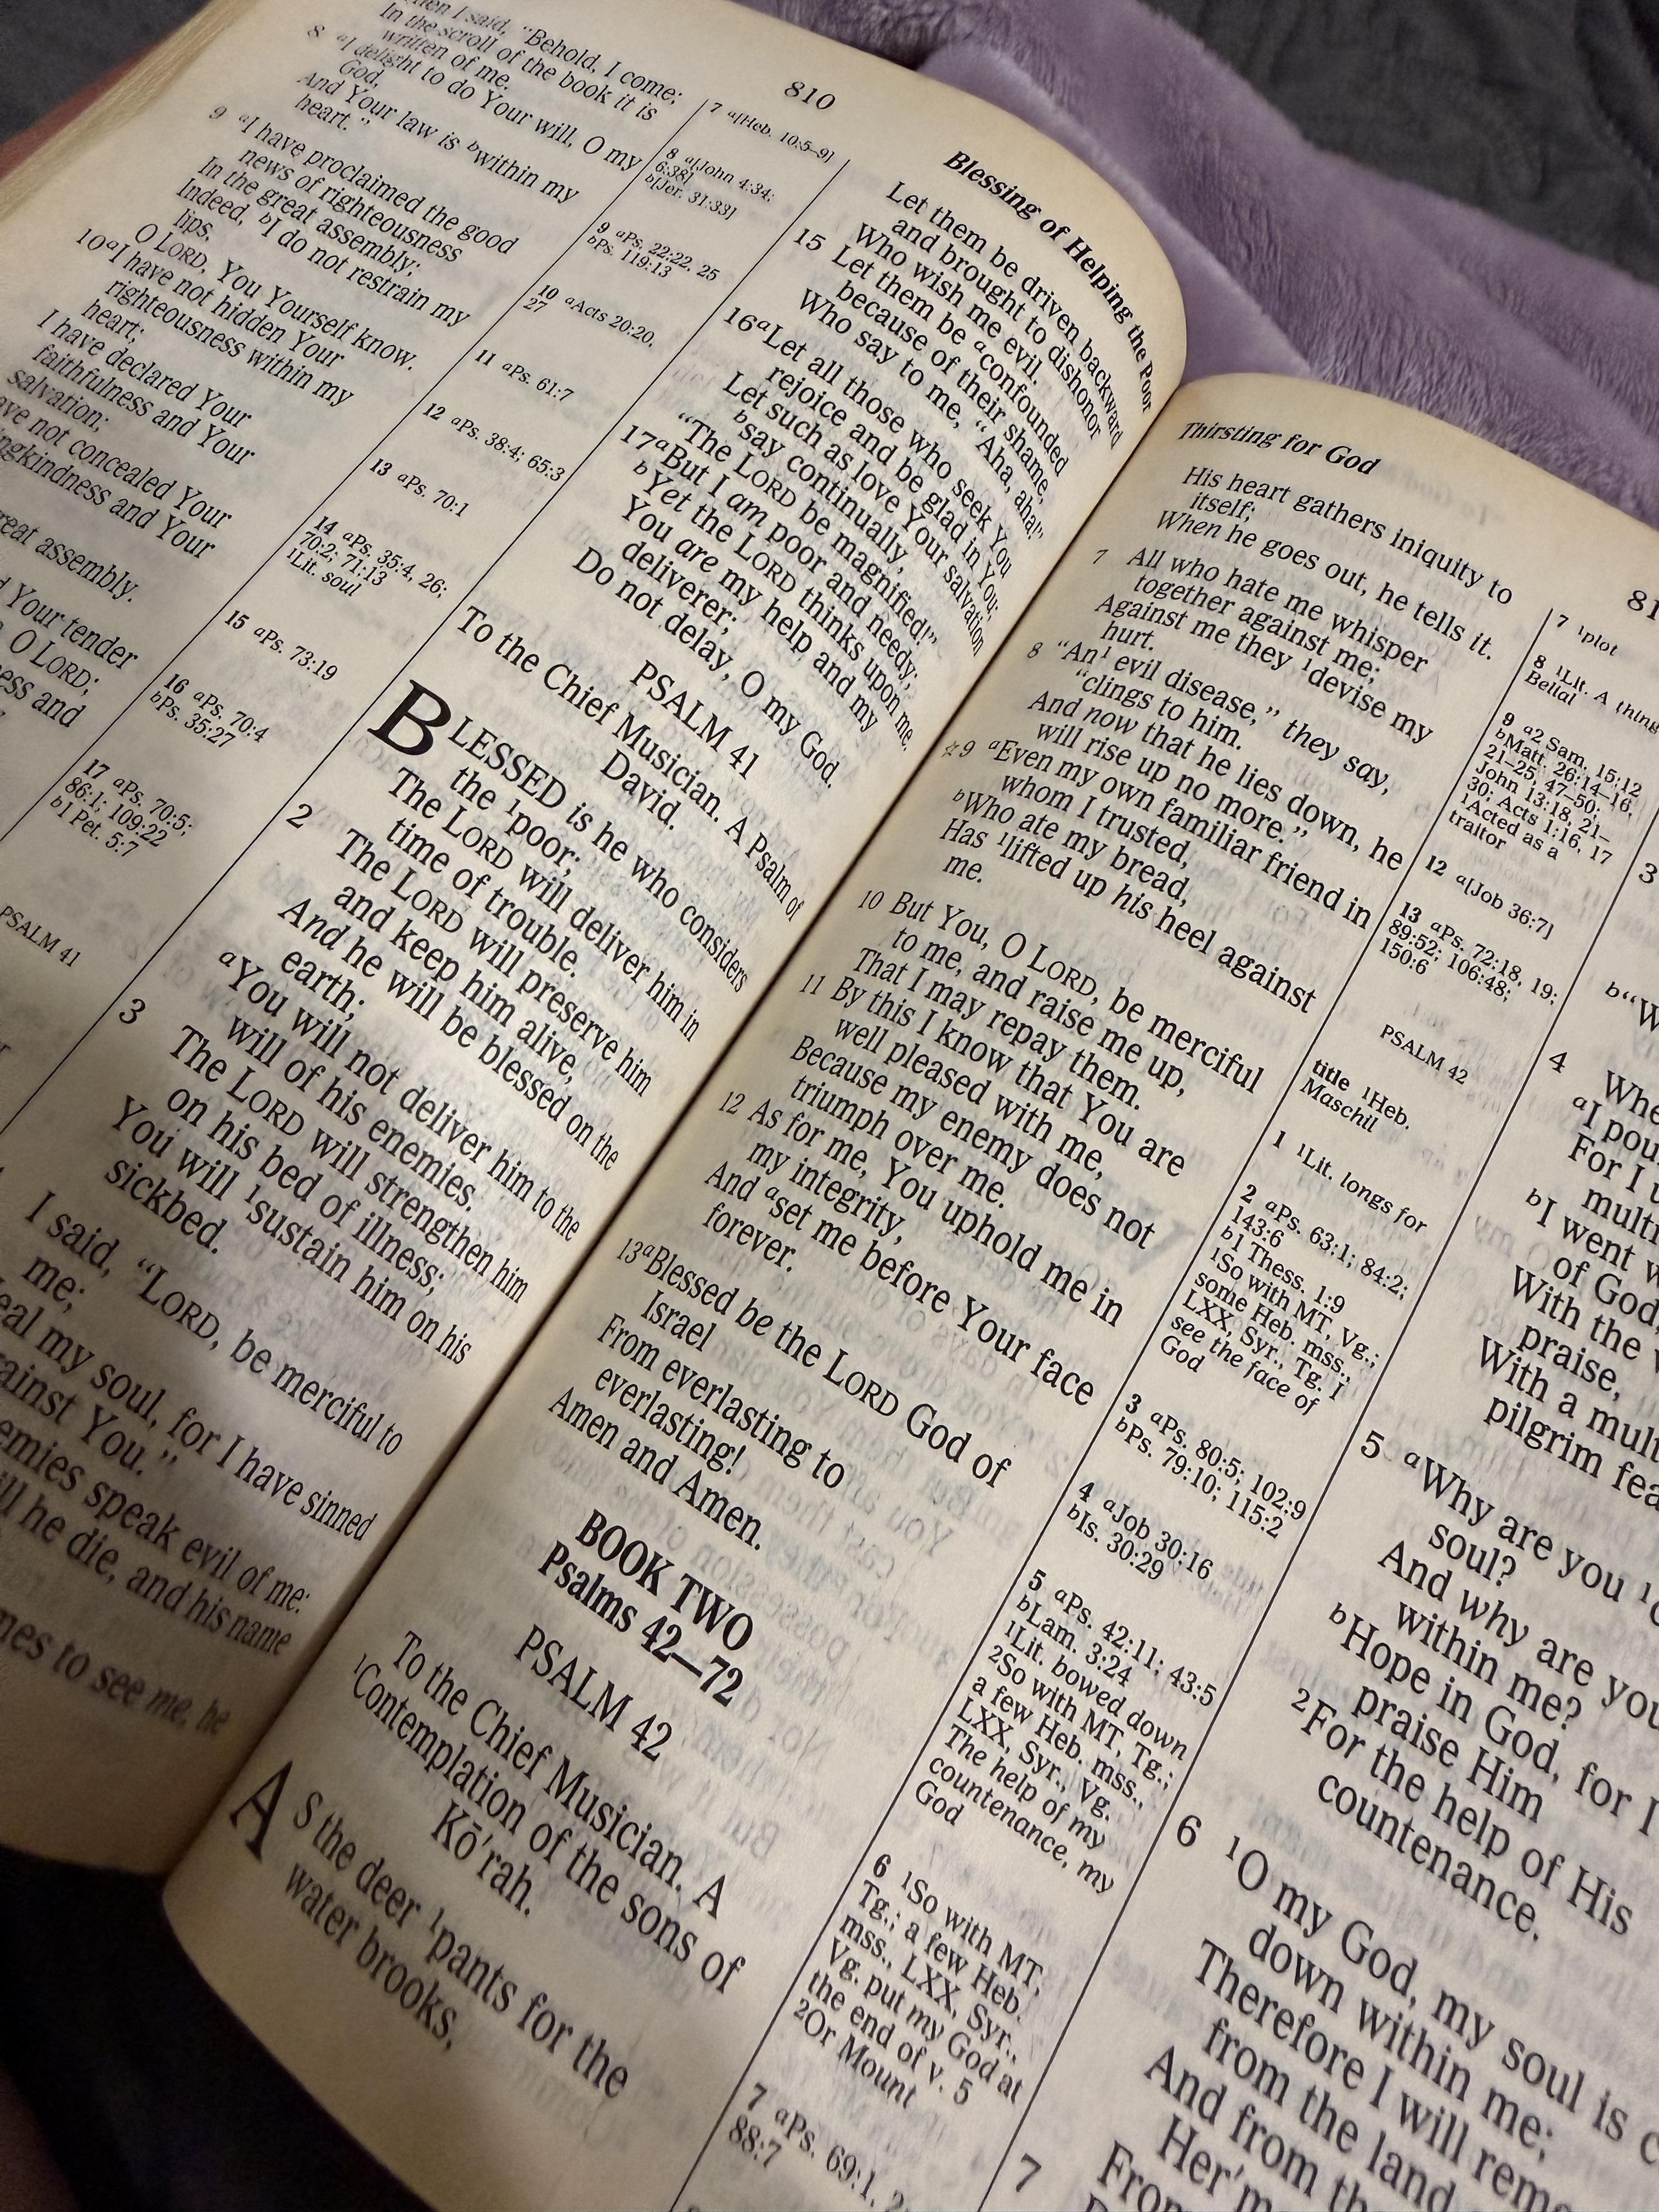 810
Blessing of Helping the Poor
hen I said, "Behold, I come;
In the scroll of the book it is
written of me.
8 aI delight to do Your will, O my
God,
And Your law is bwithin my
heart."
9 aI have proclaimed the good
news of righteousness
In the great assembly;
Indeed, bI do not restrain my
lips,
O LORD, You Yourself know.
10 aI have not hidden Your
righteousness within my
heart;
I have declared Your
faithfulness and Your
salvation;
ave not concealed Your
ngkindness and Your
reat assembly.
d Your tender
O LORD;
ess and
7 a[Heb. 10:5–9]
8 a[John 4:34;
6:38]
b[Jer. 31:33]
9 aPs. 22:22, 25
bPs. 119:13
10 aActs 20:20,
27
11 aPs. 61:7
12 aPs. 38:4; 65:3
13 aPs. 70:1
14 aPs. 35:4, 26;
70:2; 71:13
1Lit. soul
15 aPs. 73:19
16 aPs. 70:4
bPs. 35:27
17 aPs. 70:5;
86:1; 109:22
b1 Pet. 5:7
PSALM 41
Let them be driven backward
and brought to dishonor
Who wish me evil.
15 Let them be aconfounded
because of their shame,
Who say to me, "Aha, aha!"
16 aLet all those who seek You
rejoice and be glad in You;
Let such as love Your salvation
bsay continually,
"The LORD be magnified!"
17 aBut I am poor and needy;
bYet the LORD thinks upon me.
You are my help and my
deliverer;
Do not delay, O my God.
PSALM 41
To the Chief Musician. A Psalm of
David.
BLESSED is he who considers
the 1poor;
The LORD will deliver him in
time of trouble.
2 The LORD will preserve him
and keep him alive,
And he will be blessed on the
earth;
aYou will not deliver him to the
will of his enemies.
3 The LORD will strengthen him
on his bed of illness;
You will 1sustain him on his
sickbed.
I said, "LORD, be merciful to
me;
eal my soul, for I have sinned
ainst You."
emies speak evil of me:
ll he die, and his name
mes to see me, he
Thirsting for God
81
His heart gathers iniquity to
itself;
When he goes out, he tells it.
7 All who hate me whisper
together against me;
Against me they 1devise my
hurt.
8 "An1 evil disease," they say,
"clings to him.
And now that he lies down, he
will rise up no more."
☆9 aEven my own familiar friend in
whom I trusted,
bWho ate my bread,
Has 1lifted up his heel against
me.
10 But You, O LORD, be merciful
to me, and raise me up,
That I may repay them.
11 By this I know that You are
well pleased with me,
Because my enemy does not
triumph over me.
12 As for me, You uphold me in
my integrity,
And aset me before Your face
forever.
13 aBlessed be the LORD God of
Israel
From everlasting to
everlasting!
Amen and Amen.
BOOK TWO
Psalms 42—72
PSALM 42
To the Chief Musician. A
1Contemplation of the sons of
Kō′rah.
AS the deer 1pants for the
water brooks,
7 1plot
8 1Lit. A thing
Belial
9 a2 Sam. 15:12
bMatt. 26:14–16,
21–25, 47–50;
John 13:18, 21–
30; Acts 1:16, 17
1Acted as a
traitor
12 a[Job 36:7]
13 aPs. 72:18, 19;
89:52; 106:48;
150:6
PSALM 42
title 1Heb.
Maschil
1 1Lit. longs for
2 aPs. 63:1; 84:2;
143:6
b1 Thess. 1:9
1So with MT, Vg.;
some Heb. mss.,
LXX, Syr., Tg. I
see the face of
God
3 aPs. 80:5; 102:9
bPs. 79:10; 115:2
4 aJob 30:16
bIs. 30:29
5 aPs. 42:11; 43:5
bLam. 3:24
1Lit. bowed down
2So with MT, Tg.;
a few Heb. mss.,
LXX, Syr., Vg.
The help of my
countenance, my
God
6 1So with MT,
Tg.; a few Heb.
mss., LXX, Syr.,
Vg. put my God at
the end of v. 5
2Or Mount
7 aPs. 69:1,
88:7
3
b"W
4 Whe
aI pou
For I u
multi
bI went w
of God,
With the v
praise,
With a mult
pilgrim fea
5 aWhy are you 1c
soul?
And why are you
within me?
bHope in God, for I
praise Him
2For the help of His
countenance.
6 1O my God, my soul is c
down within me;
Therefore I will reme
from the land
And from th
Her′m
7 From